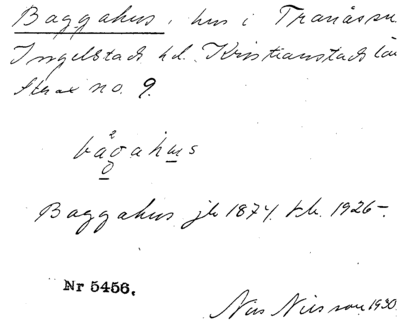 Baggahus, hus i Tranås sn
Ingelstads hd. Kristianstads län
Skrae no. 9.
bágahus
Baggahus jb 1874. kb. 1926-.
Nr 5456.
Nils Nilsson 1930.